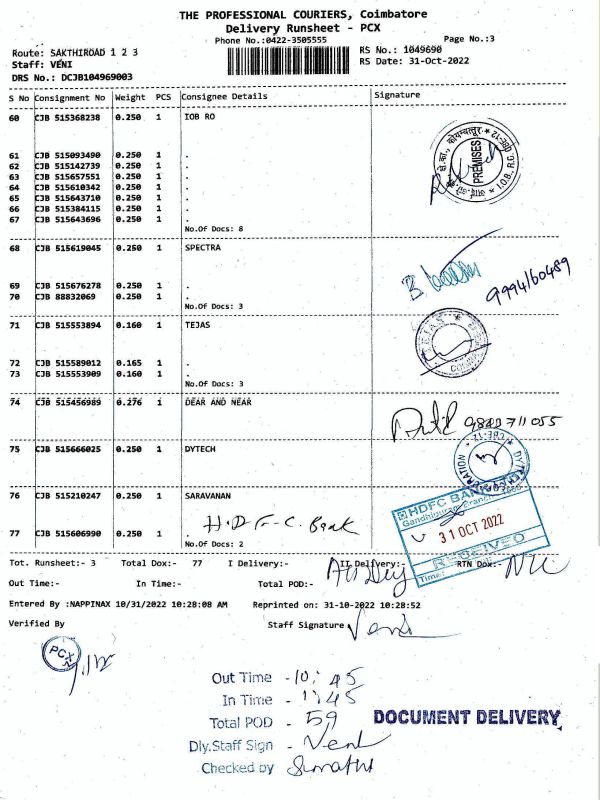 THE PROFESSIONAL COURIERS, Coimbatore
Delivery Runsheet - PCX
Phone No.:0422-3505555
Page No.:3
Route: SAKTHIROAD 1 2 3
RS No.: 1049690
Staff: VENI
RS Date: 31-Oct-2022
DRS No.: DCJB104969003
S No Consignment No Weight PCS Consignee Details Signature
60 CJB 515368238 0.250 1 IOB RO
61 CJB 515093490 0.250 1 .
62 CJB 515142739 0.250 1 .
63 CJB 515657551 0.250 1 .
64 CJB 515610342 0.250 1 .
65 CJB 515643710 0.250 1 .
66 CJB 515384115 0.250 1 .
67 CJB 515643696 0.250 1 .
No.Of Docs: 8
PREMISES
I.O.B., R.C.
68 CJB 515619045 0.250 1 SPECTRA
69 CJB 515676278 0.250 1 .
70 CJB 88832069 0.250 1 .
No.Of Docs: 3
9994160489
71 CJB 515553894 0.160 1 TEJAS
TEJAS
72 CJB 515589012 0.165 1 .
73 CJB 515553909 0.160 1 .
No.Of Docs: 3
74 CJB 515456989 0.276 1 DEAR AND NEAR
75 CJB 515666025 0.250 1 DYTECH
CBE-12
76 CJB 515210247 0.250 1 SARAVANAN
H.D.F.C. Bank
77 CJB 515606990 0.250 1
No.Of Docs: 2
HDFC BANK
Gandhipuram Branch
31 OCT 2022
RECEIVED
Time:
Tot. Runsheet:- 3 Total Dox:- 77 I Delivery:- II Delivery:- RTN Dox:-
Out Time:- In Time:- Total POD:-
Entered By :NAPPINAX 10/31/2022 10:28:08 AM Reprinted on: 31-10-2022 10:28:52
Verified By
Staff Signature Veni
PCX
Out Time - 10:45
In Time - 1:45
Total POD - 59
DOCUMENT DELIVERY
Dly.Staff Sign - Veni
Checked by